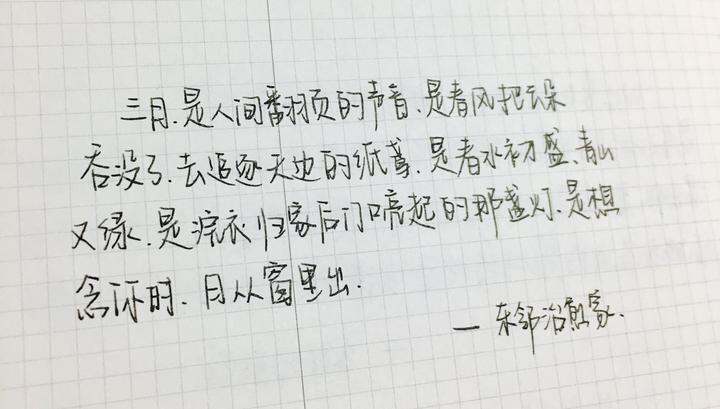 三月.是人间翻页的声音.是春风把云朵
吞没了.去追逐天边的纸鸢.是春水初盛.青山
又绿.是浣衣归家后门口亮起的那盏灯.是想
念你时.月从窗里出.
—东邻治愈家.